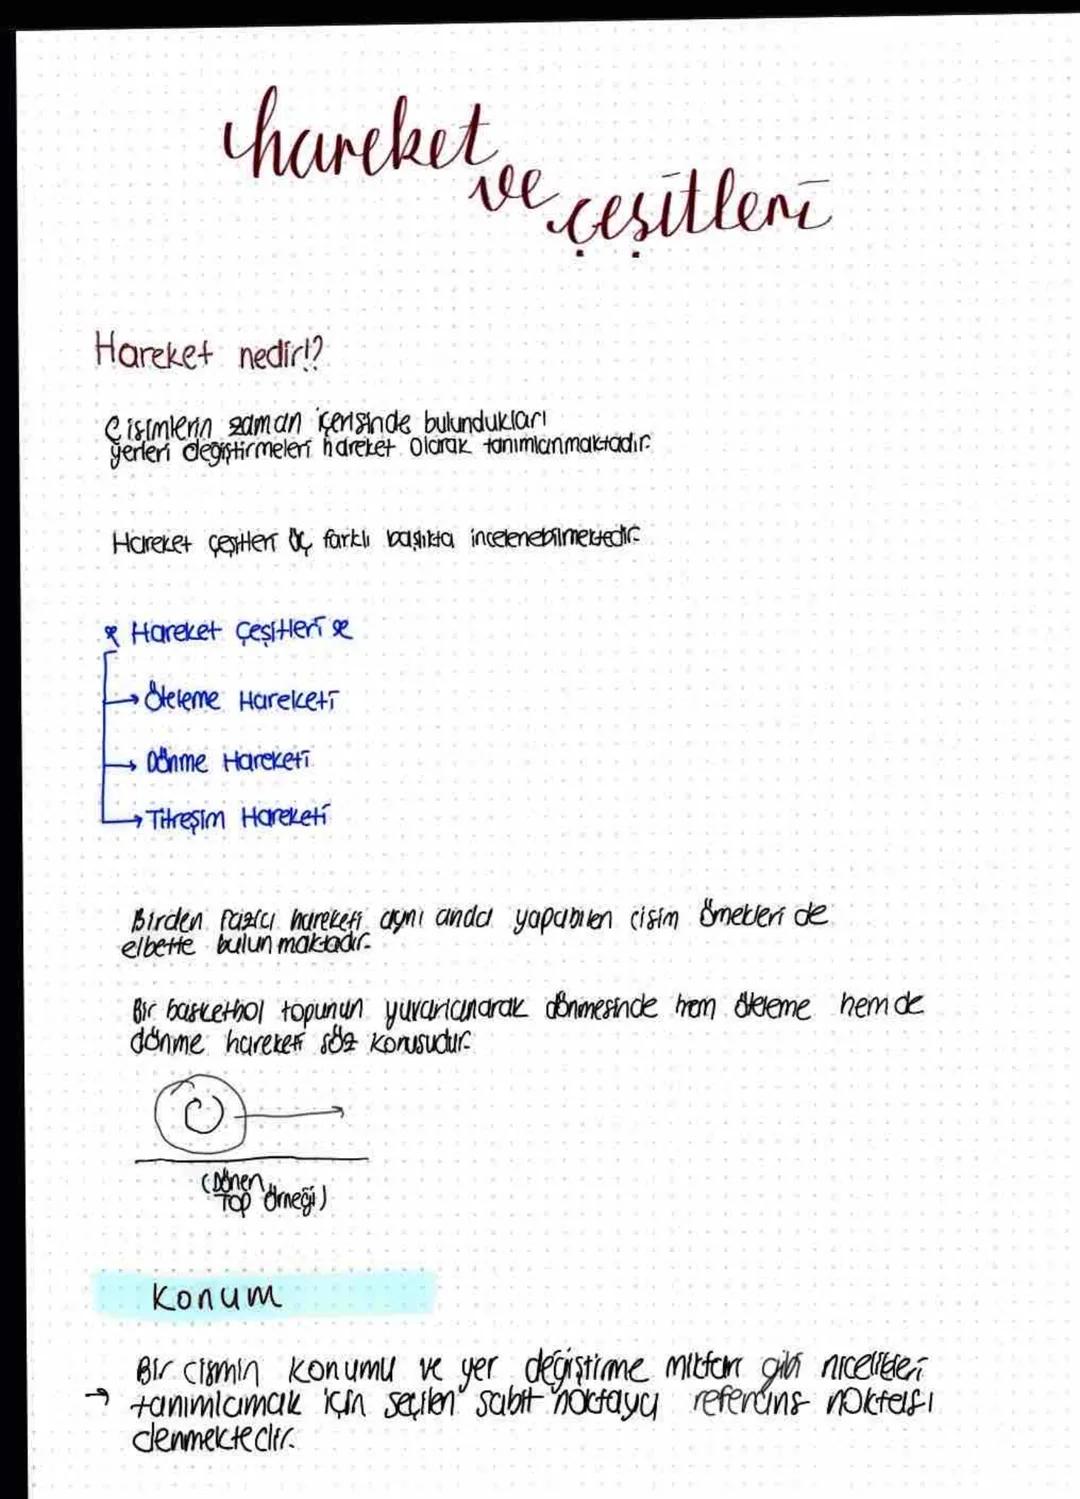 hareket
ve
çeşitleri
Hareket nedir!?
Cisimlerin zaman içerisinde bulundukları
yerleri değiştirmeleri hareket olarak tanımlanmaktadır.
Hareket çeşitleri üç farklı başlıkta incelenebilmektedir.
Hareket Çeşitleri
→ Öteleme Hareketi
→ Dönme Hareketi
→ Titreşim Hareketi
Birden fazla hareketi aynı anda yapabilen cisim örnekleri de
elbette bulunmaktadır.
Bir basketbol topunun yuvarlanarak dönmesinde hem öteleme hem de
dönme hareketi söz konusudur.
(Dönen
Top Örneği)
Konum
Bir cismin konumu ve yer değiştirme miktarı gibi nicelikleri
→ tanımlamak için seçilen sabit noktaya referans noktası
denmektedir.